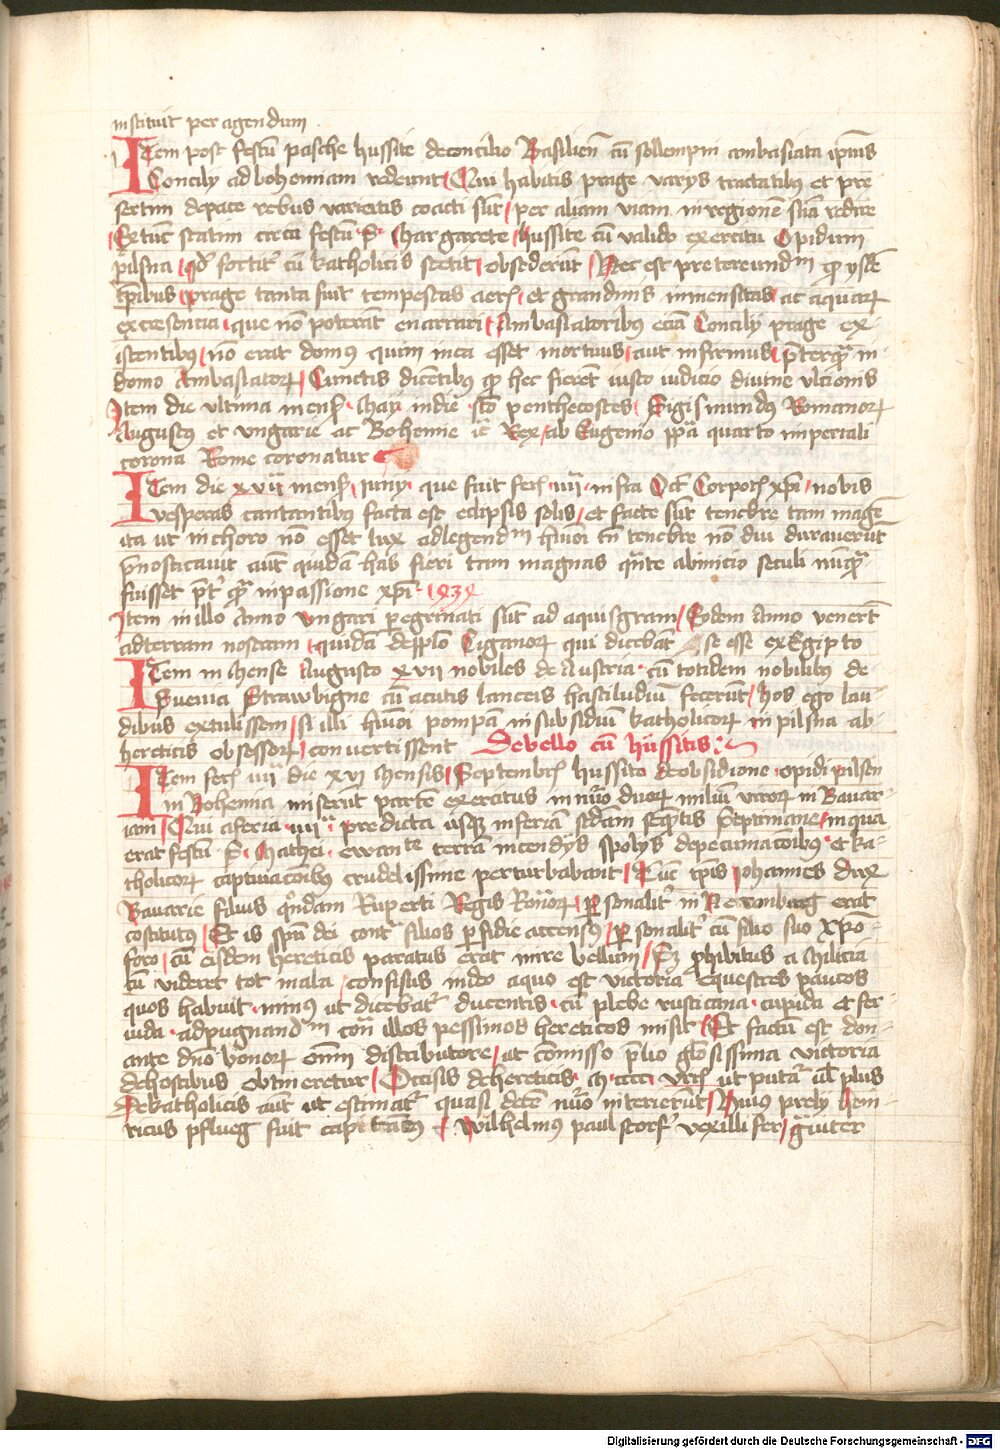 instituit per agendum
Item post festū pasche hussite de concilio Basilien̄ cū sollempni ambasiata ip̄ius
Concilij ad bohemiam redeunt Qui habitis prage varijs tractatibꝰ et pre
sertim de pace rebus variatis cōacti sūt per aliam viam in regionē suā redire
Et tūc statim circa festū s̄ Margarete hussite cū valido exercitu Opidum
pilsna qd̄ fortit̄ cū katholicis stetit obsederūt Nec est pretereundm̄ qꝫ ysdē
tp̄ribus prage tanta fuit tempestas aerꝫ et grandinis inmensitas ac aquaꝝ
excrescencia que nō poterāt enarrari Ambasiatoribus eciā Concilij prage ex
istentibꝰ nō erat domꝰ quin in ea esset mortuus aut infirmus p̄terqꝫ in
domo Ambasiatoꝝ Cunctis dicētibus qꝫ hec fierēt iusto iudicio diuine vlcionis
Item die vltima mensꝫ Maij in die sc̄o penthecostes Sigismundꝰ Romanoꝝ
Augustꝰ et vngarie ac Bohemie rc̄ Rex ab Eugenio pp̄a quarto imperiali
corona Rome coronatur
Item die xvii mensꝫ Junij que fuit ferꝫ iiii infra Oct̄ Corporꝫ xp̄i nobis
vesperas cantantibꝰ facta est eclipsis solis et facte sūt tenebre tam magne
ita ut in choro nō esset lux ad legendm̄ hmōi tn̄ tenebre nō diu durauerūt
p̄nosticauit autē quidā has fieri tam magnas qūte ab inicio seculi nūqꝫ
fuisset p̄t qꝫ in passione xp̄i 1434
Item in illo Anno vngari peregrinati sūt ad aquisgram Eodem Anno venerūt
ad terram nostram quidā de pplo Ciganoꝝ qui dicebāt se esse ex Egipto
Item in Mense Augusto xvii nobiles de Austria cū totidem nobilibꝰ de
Sueuia Strawbigne cū acutis lanceis hastiludiū fecerūt hos ego lau
dibus extulissem si illi hmōi pompā in subsidiū katholicoꝝ in pilsna ab
hereticis obsessoꝝ conuertissent De bello cū hussitis
Item ferꝫ iiii die xvi Mensis Septembrꝫ hussita de obsidione opidi pilsen
in Bohemia miserūt partē exercitus in nūo duoꝝ miliū viroꝝ in Bauar
iam Qui a feria iiii predicta usqꝫ in feriā sc̄dam seqn̄tis Septimane in qua
erat festū s̄ Mathei ewan̄te terrā incendijs spolijs depecunacōibus et ka
tholicoꝝ captiuacōibus crudelissime perturbabant Tūc tp̄is Johannes dux
Bauarie filius qn̄dam Ruperti Regis Romaoꝝ personalit̄ in Newnburg erat
cōstitutꝰ Et is spū dei contͣ filios perfidie accensꝰ personalit̄ cū filio suo Xpō
foro cū eisdem hereticis paratus erat inire bellum Sꝫ prohibitus a Milicia
cū videret tot mala confisus in deo a quo est victoria Equestres paucos
quos habuit minꝰ ut dicebatᷣ ducentis cū plebe rusticana cupida et fer
uida ad pugnandm̄ con̄ illos pessimos hereticos misit Et factū est don
ante dn̄o bonoꝝ omī distributore ut cōmisso p̄lio gl̄osissima victoria
de hostibus obtineretur Occisis de hereticis M cccc virꝫ ut putatᷣ vl̄ plus
De katholicis autē ut estimatᷣ quasi decē nūo interierūt Huius prelij hein
ricus pflueg fuit capitanꝰ Wilhelmꝰ paulstorf̄ vexillifer gnūter